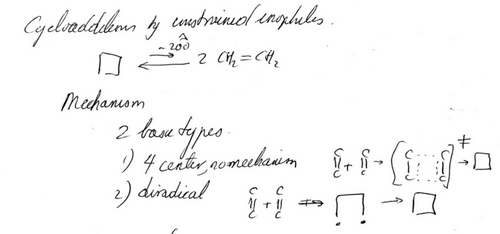 Cycloadditions by unstrained enophiles.
~200
□ ⇌ 2 CH2=CH2
Mechanism
2 basic types
1) 4 center, no mechanism C=C + C=C → [C=C C=C]‡ → □
2) diradical C=C + C=C → → □